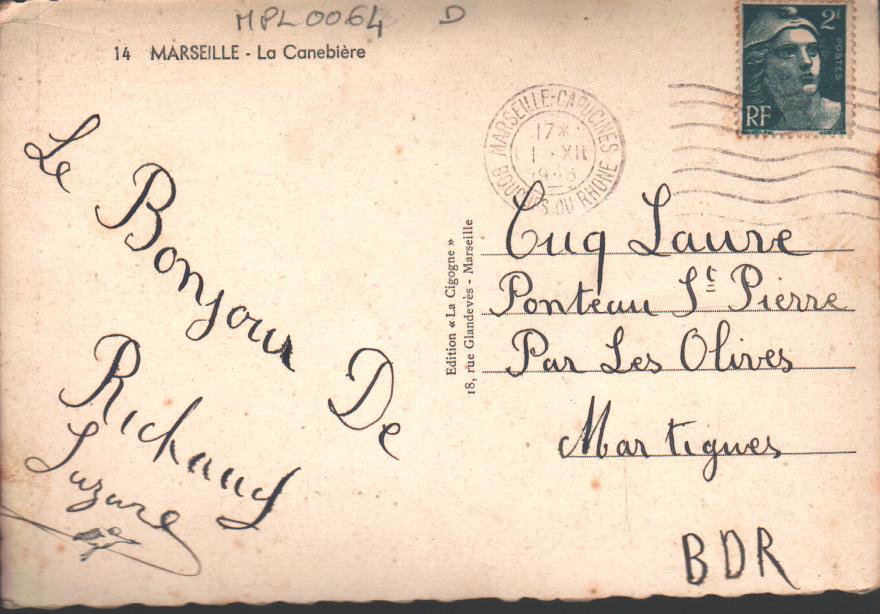 MPL0064 D
14 MARSEILLE - La Canebière
2F
POSTES
RF
MARSEILLE-CAPUCINES
17*
1 · XII
BOUCHES DU RHÔNE
Le Bonjour De
Richaud
Suzane
Edition « La Cigogne »
18, rue Glandevès - Marseille
Cuq Laure
Ponteau St Pierre
Par Les Olives
Martigues
BDR